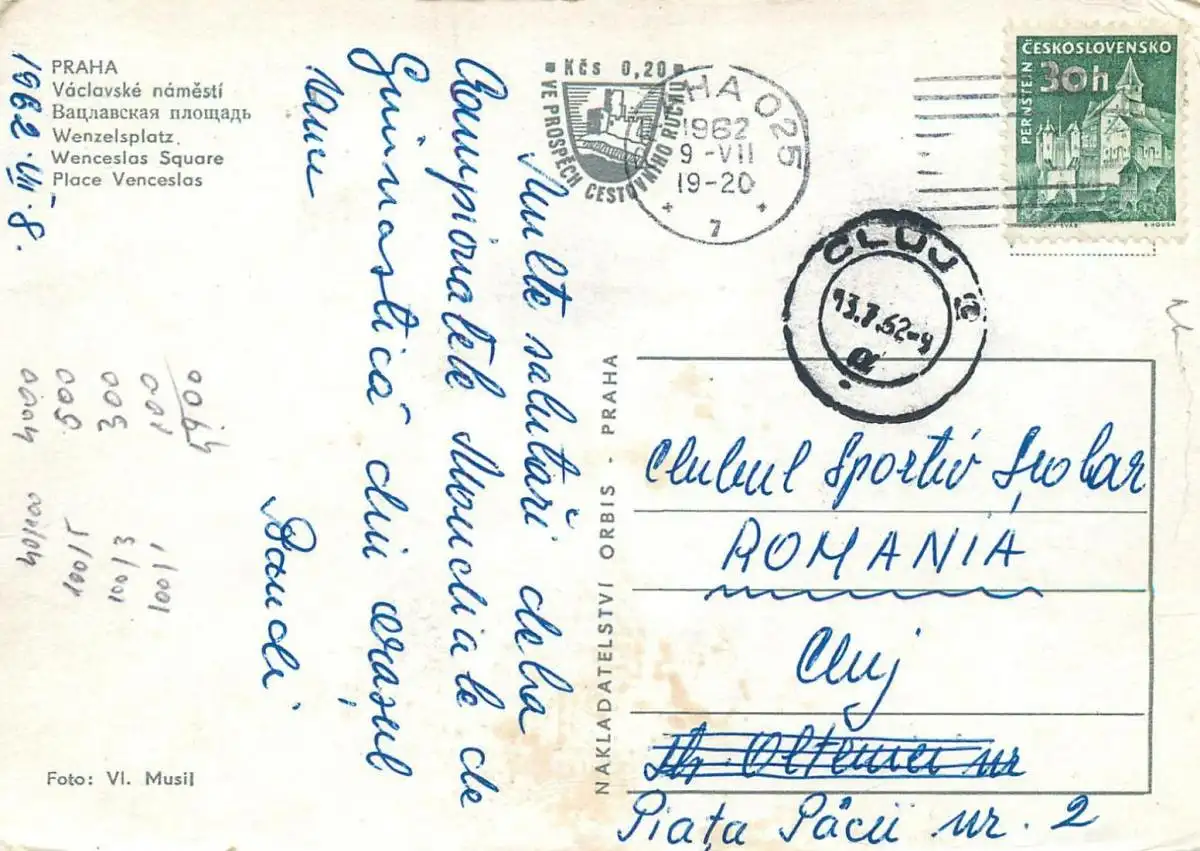 PRAHA
Václavské náměstí
Вацлавская площадь
Wenzelsplatz
Wenceslas Square
Place Venceslas
1962.VII.8.
Multe salutări dela
Campionatele Mondiale de
Gimnastică din orașul
Bandi
Kčs 0,20
VE PROSPĚCH CESTOVNÍHO RUCHU
HA 025
1962
9-VII
19-20
7
ČESKOSLOVENSKO
30h
PERNŠTEJN
CLUJ
13.7.62-9
NAKLADATELSTVÍ ORBIS - PRAHA
Clubul Sportiv Școlar
ROMANIA
Cluj
Str Olteniei nr
Piața Păcii nr. 2
100/1
001
100/3
003
100/5
005
Foto: Vl. Musil